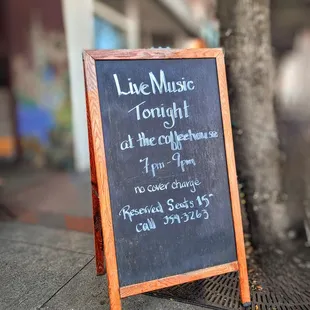 Live Music
Tonight
at the coffeehouse
7pm-9pm
no cover charge
Reserved Seats 15-
call 359-3263